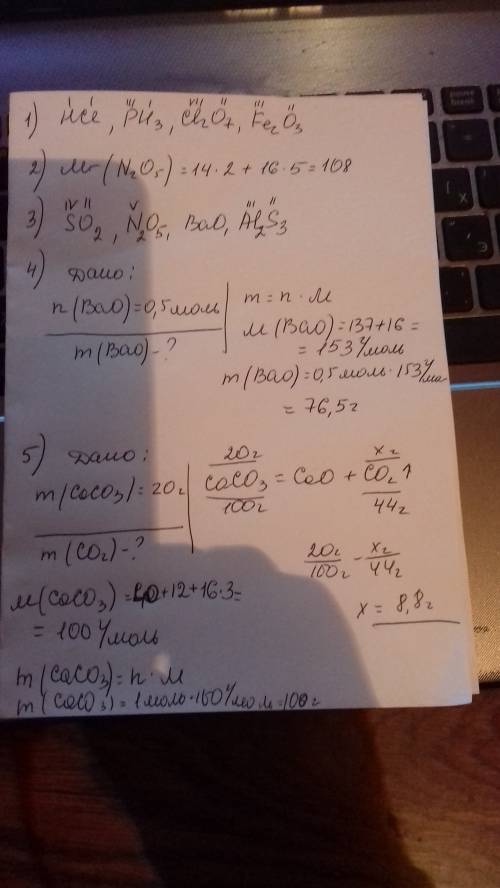 1) HCl, PH₃, Cl₂O₇, Fe₂O₃
2) Mr (N₂O₅) = 14·2 + 16·5 = 108
3) SO₂, N₂O₅, BaO, Al₂S₃
4) Дано:
n(BaO) = 0,5 моль
m(BaO) - ?
m = n · M
M(BaO) = 137 + 16 =
= 153 г/моль
m(BaO) = 0,5 моль · 153 г/мо
= 76,5 г
5) Дано:
m(CaCO₃) = 20г
m(CO₂) - ?
20г xг
CaCO₃ = CaO + CO₂↑
100г 44г
20г/100г - xг/44г
x = 8,8г
M(CaCO₃) = 40 + 12 + 16·3 =
= 100 г/моль
m(CaCO₃) = n · M
m(CaCO₃) = 1 моль · 100 г/моль = 100г